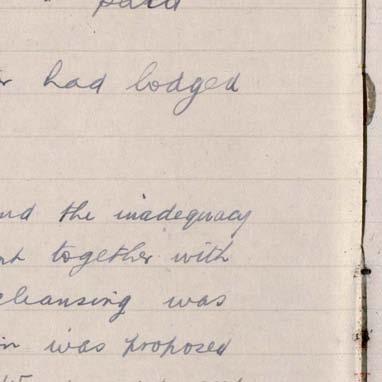 paid
had lodged
the inadequacy
together with
cleansing was
was proposed